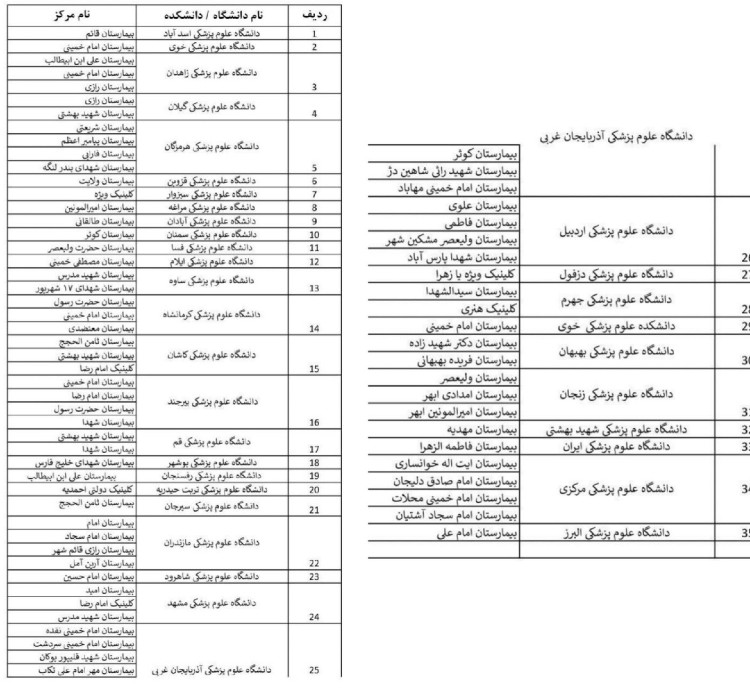 ردیف نام دانشگاه / دانشکده نام مرکز
1 دانشگاه علوم پزشکی اسد آباد بیمارستان قائم
2 دانشگاه علوم پزشکی خوی بیمارستان امام خمینی
بیمارستان علی ابن ابیطالب
دانشگاه علوم پزشکی زاهدان بیمارستان امام خمینی
3 بیمارستان رازی
دانشگاه علوم پزشکی گیلان بیمارستان رازی
4 بیمارستان شهید بهشتی
بیمارستان شریعتی
دانشگاه علوم پزشکی هرمزگان بیمارستان پیامبر اعظم
بیمارستان فارابی
5 بیمارستان شهدای بندر لنگه
6 دانشگاه علوم پزشکی قزوین بیمارستان ولایت
7 دانشگاه علوم پزشکی سبزوار کلینیک ویژه
8 دانشگاه علوم پزشکی مراغه بیمارستان امیرالمونین
9 دانشگاه علوم پزشکی آبادان بیمارستان طالقانی
10 دانشگاه علوم پزشکی سمنان بیمارستان کوثر
11 دانشگاه علوم پزشکی فسا بیمارستان حضرت ولیعصر
12 دانشگاه علوم پزشکی ایلام بیمارستان مصطفی خمینی
دانشگاه علوم پزشکی ساوه بیمارستان شهید مدرس
13 بیمارستان شهدای ۱۷ شهریور
بیمارستان حضرت رسول
دانشگاه علوم پزشکی کرمانشاه بیمارستان امام خمینی
14 بیمارستان معتضدی
بیمارستان ثامن الحجج
دانشگاه علوم پزشکی کاشان بیمارستان شهید بهشتی
15 کلینیک امام رضا
بیمارستان امام خمینی
دانشگاه علوم پزشکی بیرجند بیمارستان امام رضا
بیمارستان حضرت رسول
16 بیمارستان شهدا
دانشگاه علوم پزشکی قم بیمارستان شهید بهشتی
17 بیمارستان شهدا
18 دانشگاه علوم پزشکی بوشهر بیمارستان شهدای خلیج فارس
19 دانشگاه علوم پزشکی رفسنجان بیمارستان علی ابن ابیطالب
20 دانشگاه علوم پزشکی تربت حیدریه کلینیک دولتی احمدیه
21 دانشگاه علوم پزشکی سیرجان بیمارستان ثامن الحجج
بیمارستان امام
دانشگاه علوم پزشکی مازندران بیمارستان امام سجاد
بیمارستان رازی قائم شهر
22 بیمارستان آرین آمل
23 دانشگاه علوم پزشکی شاهرود بیمارستان امام حسین
بیمارستان امید
دانشگاه علوم پزشکی مشهد کلینیک امام رضا
24 بیمارستان شهید مدرس
بیمارستان امام خمینی نقده
بیمارستان امام خمینی سردشت
بیمارستان شهید قلیپور بوکان
25 دانشگاه علوم پزشکی آذربایجان غربی بیمارستان مهر امام علی تکاب
دانشگاه علوم پزشکی آذربایجان غربی
بیمارستان کوثر
بیمارستان شهید رائی شاهین دژ
بیمارستان امام خمینی مهاباد
بیمارستان علوی
دانشگاه علوم پزشکی اردبیل بیمارستان فاطمی
بیمارستان ولیعصر مشکین شهر
26 بیمارستان شهدا پارس آباد
27 دانشگاه علوم پزشکی دزفول کلینیک ویژه یا زهرا
دانشگاه علوم پزشکی جهرم بیمارستان سیدالشهدا
28 کلینیک هنری
29 دانشکده علوم پزشکی خوی بیمارستان امام خمینی
دانشگاه علوم پزشکی بهبهان بیمارستان دکتر شهید زاده
30 بیمارستان فریده بهبهانی
بیمارستان ولیعصر
دانشگاه علوم پزشکی زنجان بیمارستان امدادی ابهر
31 بیمارستان امیرالمونین ابهر
32 دانشگاه علوم پزشکی شهید بهشتی بیمارستان مهدیه
33 دانشگاه علوم پزشکی ایران بیمارستان فاطمه الزهرا
بیمارستان ایت اله خوانساری
34 دانشگاه علوم پزشکی مرکزی بیمارستان امام صادق دلیجان
بیمارستان امام خمینی محلات
بیمارستان امام سجاد آشتیان
35 دانشگاه علوم پزشکی البرز بیمارستان امام علی